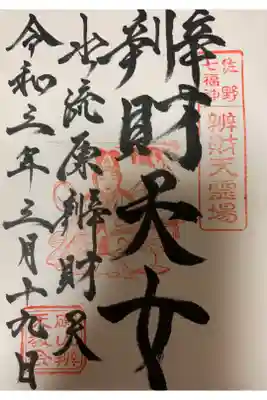 佐野
七福神
辨財天霊場
辨財天女
水流原辨財天
令和三年三月十九日